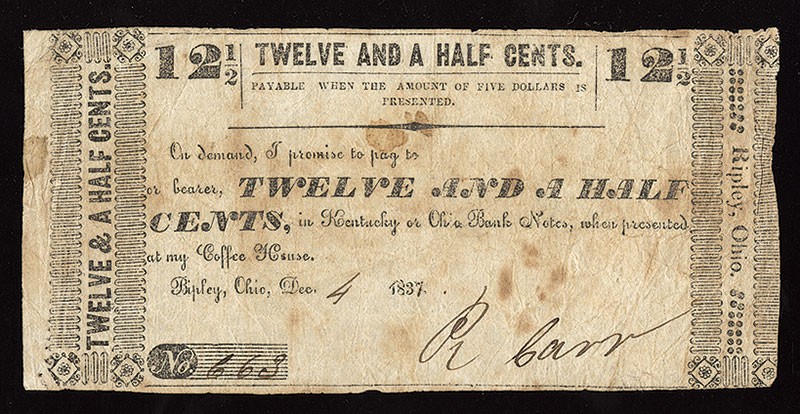 TWELVE & A HALF CENTS.
12 1/2
TWELVE AND A HALF CENTS.
12 1/2
PAYABLE WHEN THE AMOUNT OF FIVE DOLLARS IS
PRESENTED.
On demand, I promise to pay to
or bearer, TWELVE AND A HALF
CENTS, in Kentucky or Ohio Bank Notes, when presented
at my Coffee House.
Ripley, Ohio, Dec. 4 1837.
No. 663
R Carr
Ripley, Ohio.